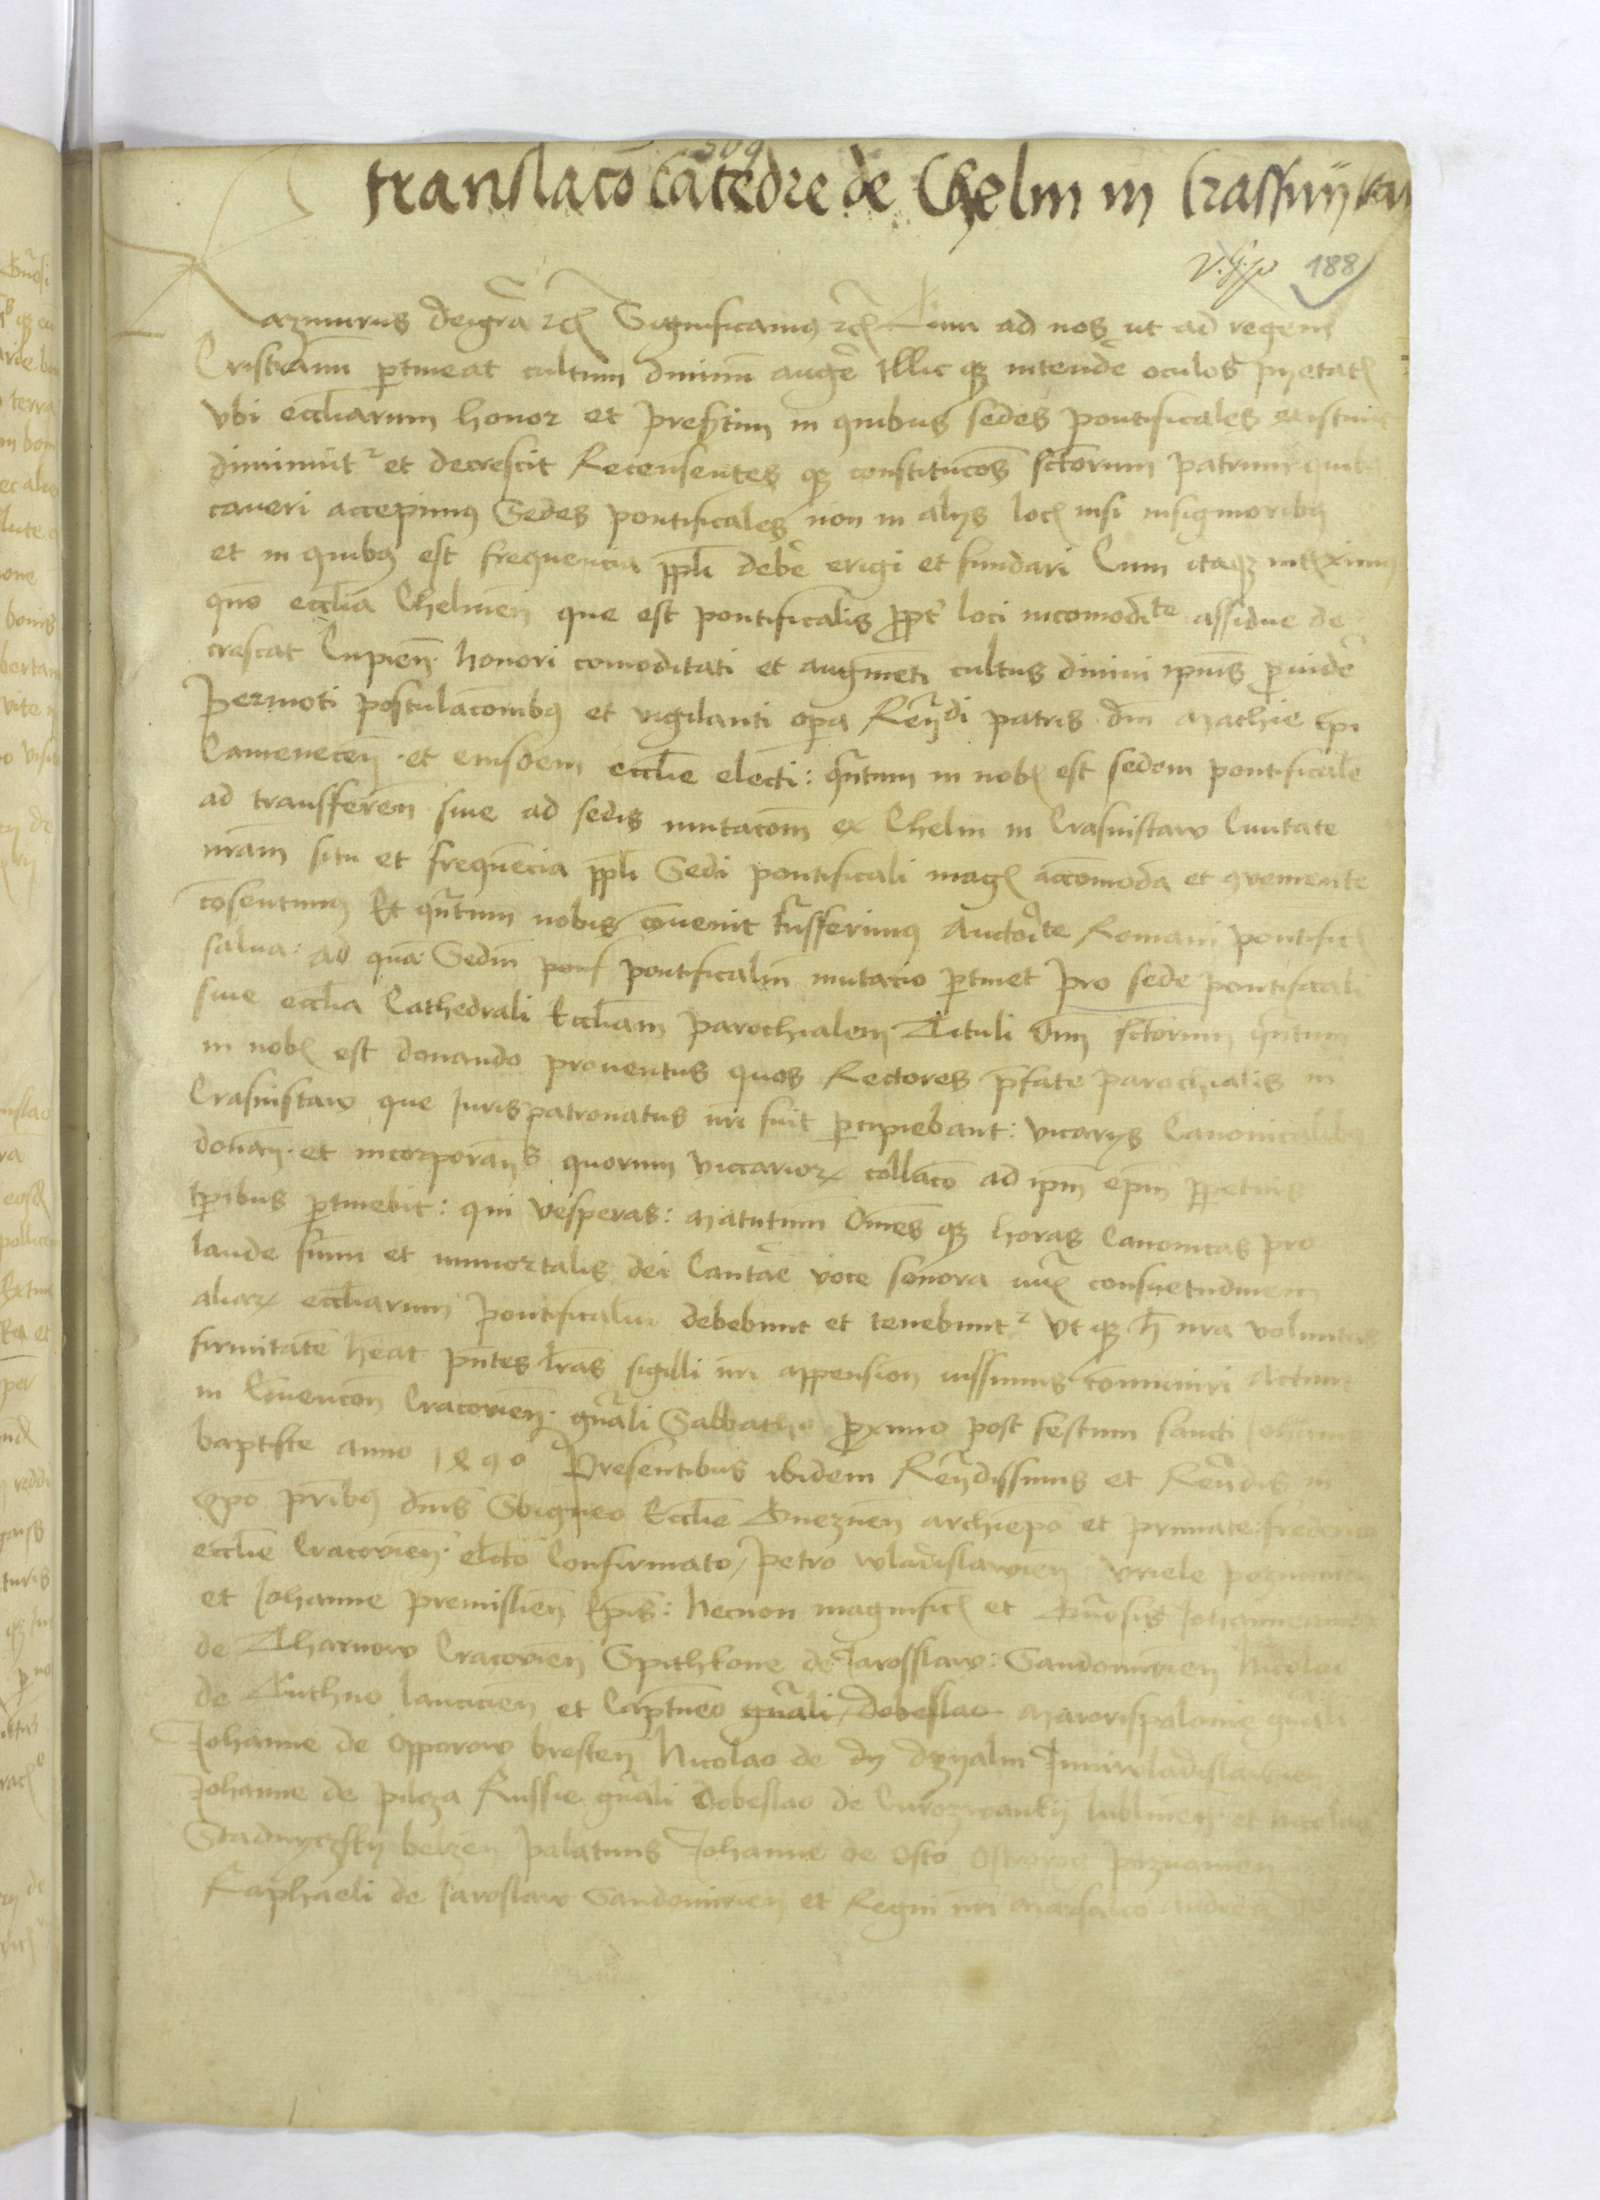 509
translaco Catedre de Chelm in Crassnÿstaw
188
Kazimirus dei gra etc Significamus etc Cum ad nos ut ad regem
Cristianu ptineat cultum diuinu auge Illic qz intende oculos pietatis
vbi eccliarum honor et presertim in quibus sedes pontificales existunt
diminuitr et decrescit Recensentes qz constitucoes sctorum patrum quibus
caueri accepimus Sedes pontificales non in alijs locis nisi insignioribus
et in quibus est frequencia ppli debe erigi et fundari Cum itaqz
quo ecclia Chelmen que est pontificalis ppt loci incomoditate assidue de
crescat Cupien honori comoditati et augmeti cultus diuini ipius puide
Permoti postulacombus et vigilanti opa Reuendi patris dni Mathie epi
Camenecen et eiusdem ecclie electi: qntum in nobis est sedem pontificale
ad transfferen siue ad sedis mutacom ex Chelm in Crasnistaw Ciuitate
nram situ et frequecia ppli Sedi pontificali magis accomoda et conueniente
cosentimus Et qntum nobis couenit tnsfferimus Auctoritate Romani pontificis
salua: ad qua Sedm pontificalim mutacio ptinet pro sede pontificali
siue ecclia Cathedrali Eccliam parochialem Tituli Oim sctorum qntum
in nobis est donando prouentus quos Rectores pfate parochialis in
Crasnistaw que Iurispatronatus nri fuit pcipiebant: vicarijs Canonicalibus
donan et incorporans quorum viccariorz collaco ad ipm epm ppetuis
tpibus ptinebit: qui vesperas: Matutinum Omes qz horas Canonicas pro
laude sumi et immortalis dei Cantare voce sonora iuxta consuetudinem
aliarz eccliarum pontificaliu debebunt et tenebuntr Vt qz h nra voluntas
firmitatem heat pntes lras sigilli nri appension iussimus comuniri Actum
in Conuencon Cracouien gnali Sabbatho proximo post festum sancti Johannis
baptiste anno 1490 Presentibus ibidem Reuendissimis et Reuendis in
xpo pribus dnis Sbigneo Ecclie Gneznen archiepo et primate frederico
ecclie Cracouien electo Confirmato / petro wladislauien Vriele poznanien
et Johanne premislien Epis: Necnon magnificis et Gnosis Johanne
de Tharnow Cracouien Spithkone de Jarosslaw: Sandomirien Nicolao
de Cuthno lancicien et Captneo gnali / dobeslao Maiorispolonie gnali
Johanne de Opporow bresten Nicolao de dzyalin Iuniwladislauien
Johanne de pilcza Russie gnali dobeslao de Curozwanky lublinen et Nicolao
belzen palatinis Johanne de Osto Ostrorog poznanien
Raphaeli de Jaroslaw Sandomirien et Regni nri Marsalco Andrea